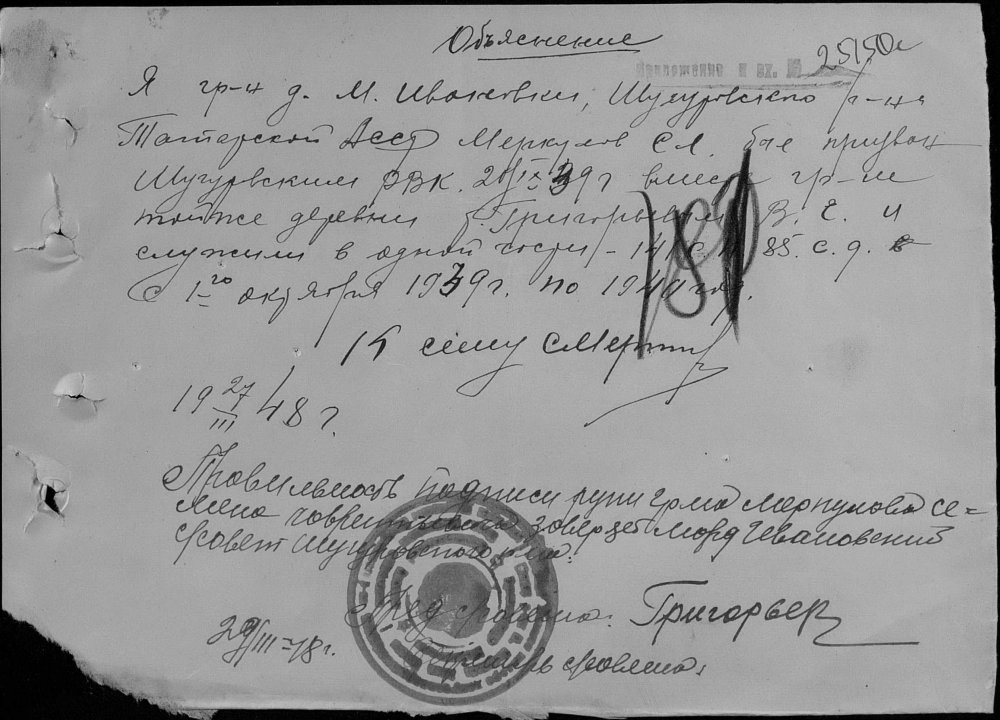 Объяснение
Приложение к вх. № 25150с
Я гр-н д. М. Ивановки, Шугуровского р-на
Татарской АССР Меркулов С.Л. был призван
Шугуровским РВК. 20/IX-39г вместе гр-м
той же деревни Григорьевым В. Е. и
служили в одной части - 141 с.п 85. с.д.
с 1го октября 1939г. по 1941 год.
К сему СМерк
19 27/III 48 г.
Правильность подписи руки гр-на Меркулова Се=
мена Лаврентьевича заверяет Морд Ивановский
с/совет Шугуровского р-на.
Пред с/совета: Григорьев
29/III-48г.
Секретарь с/совета: